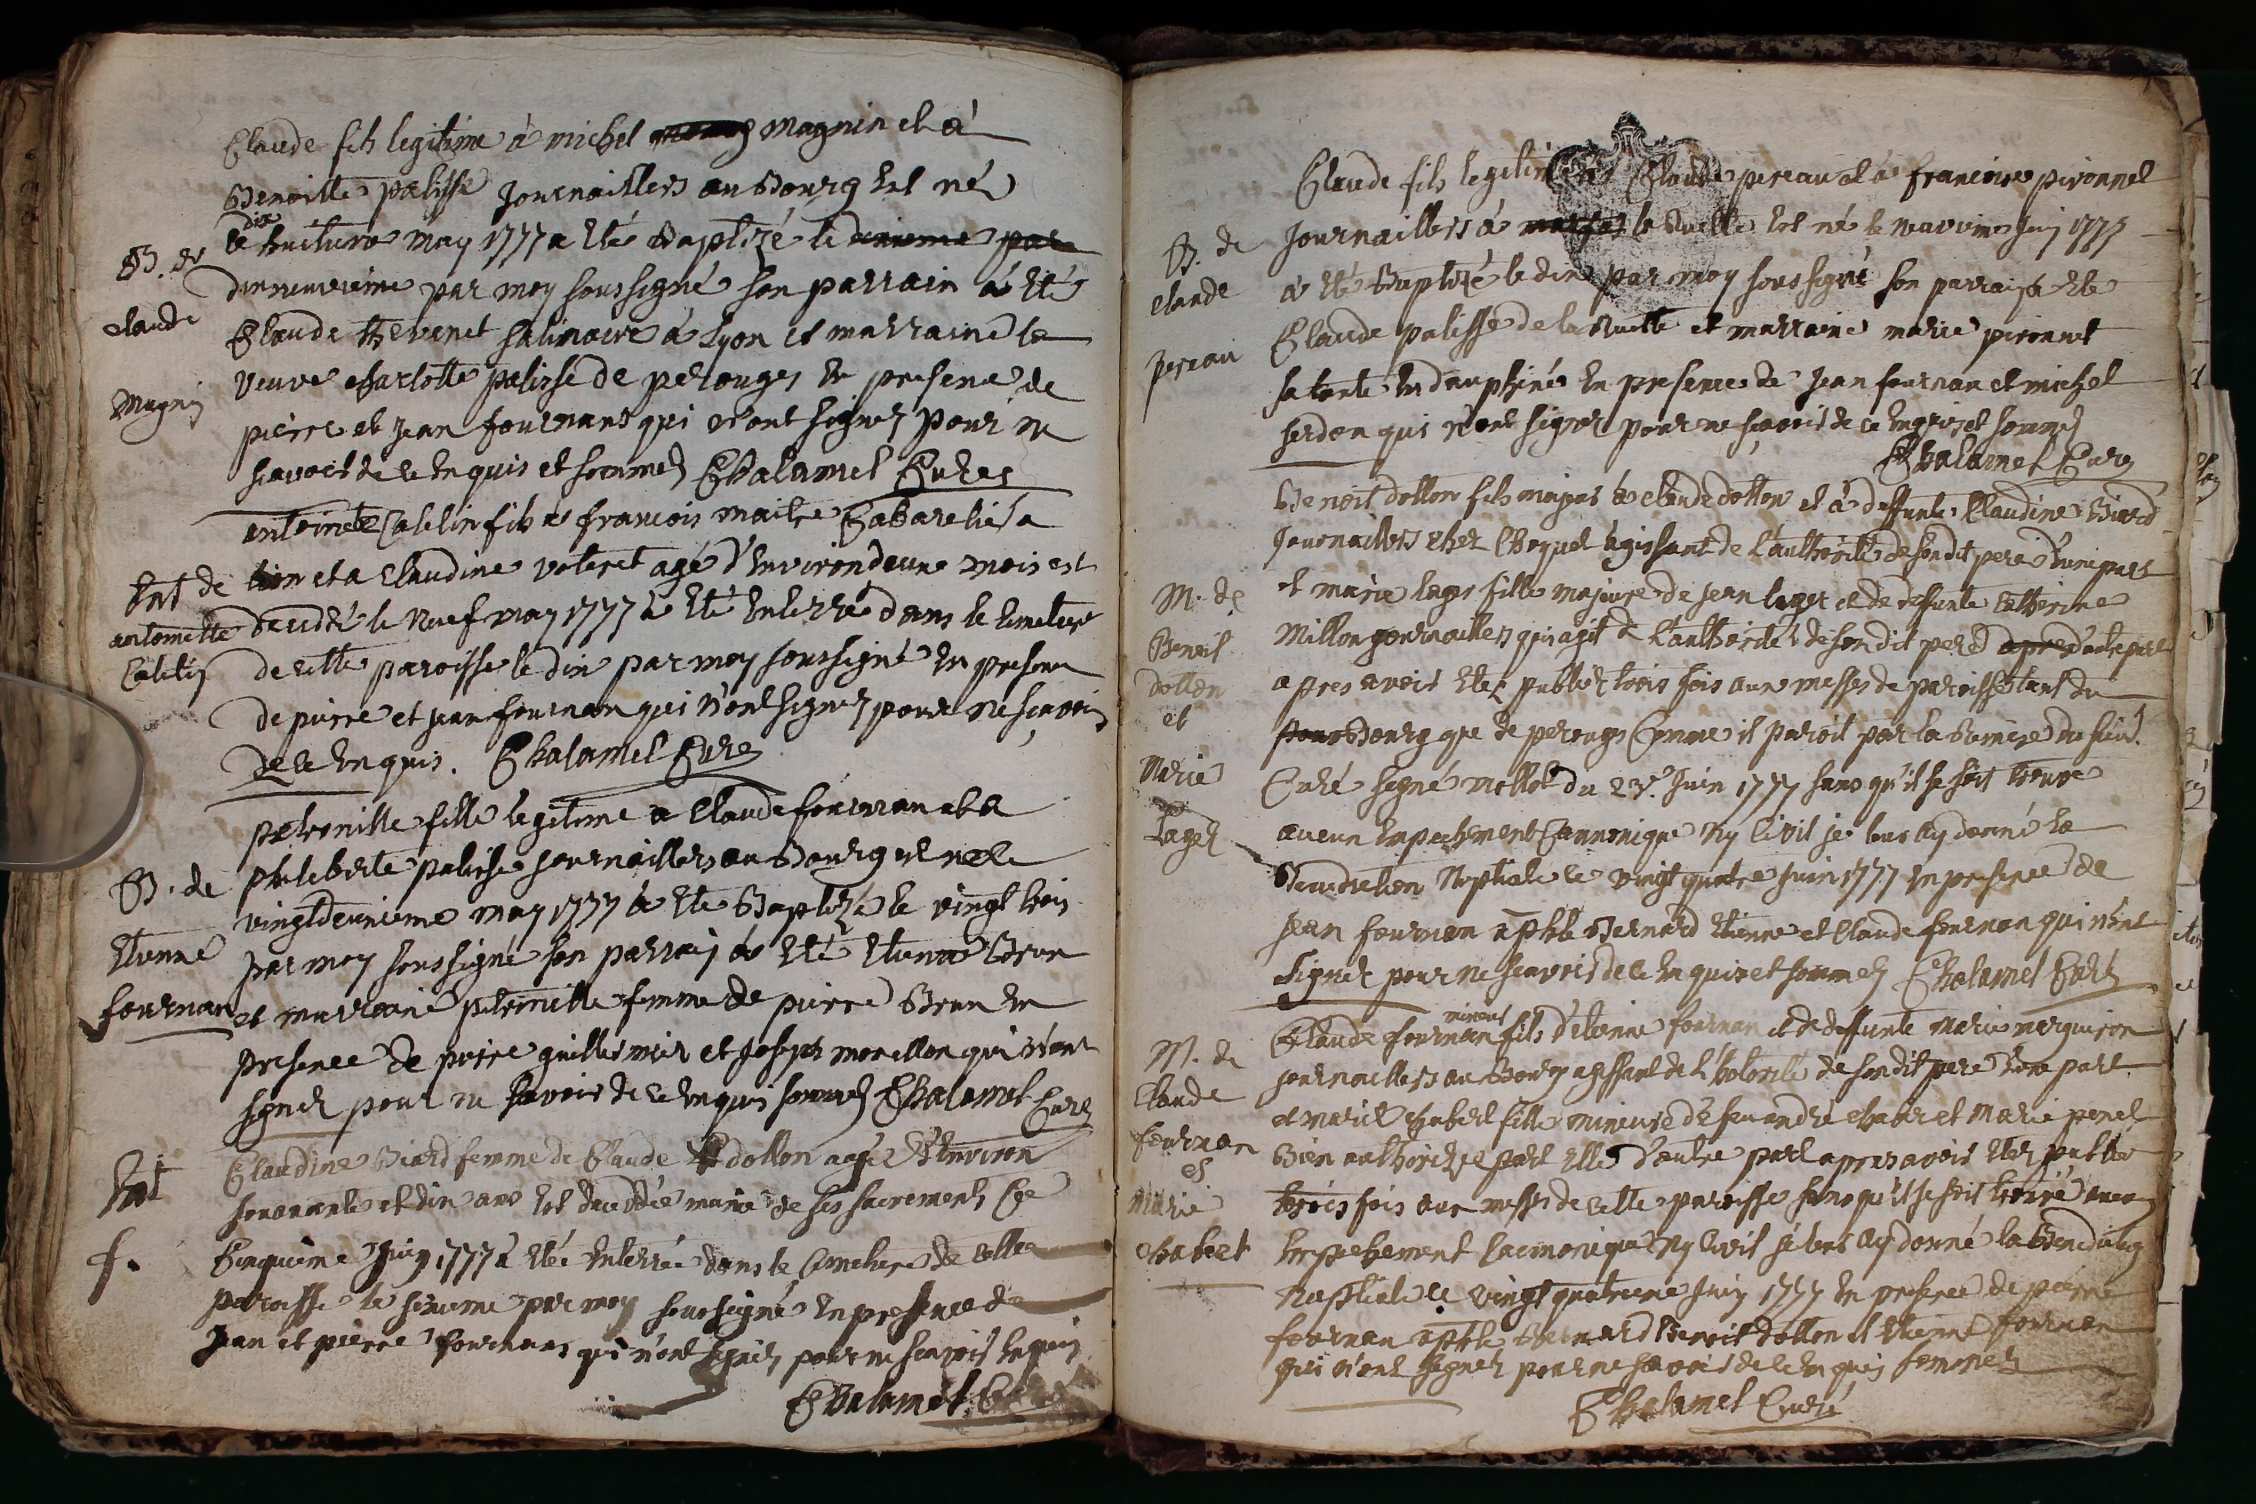 Claude fils legitime à michel magnin et à
Benoitte palisse Journailliers au Bourg est né
dix
le huitieme may 1777 a été Baptizé le dixieme par
B. de
Claude
Magnin
dixneuvieme par moy soussigné son parrain à été
Claude thevenet salinaire à Lyon et marraine la
veuve charlotte palisse de perouges en presence de
pierre et jean fournans qui n'ont signez pour ne
scavoir de ce enquis et sommez Chalamel Curé
Ent de
antoinette
Catelin
antoinette Catelin fils a francois maitre Cabaretier a
et a Claudine voleret agé d'environ deux mois est
decedé le neuf may 1777 à été enterré dans le cimetiere
de cette paroisse le dix par moy soussigné en presence
de pierre et jean fournan qui n'ont signez pour ne scavoir
de ce enquis. Chalamel Curé
B. de
Etienne
fournan
petronille fille legitime a Claude fournan et a
philiberte palisse journailliers au Bourg est nee le
vingtdeuxieme may 1777 à été Baptizé le vingt trois
par moy soussigné son parrain à été Etienne Brun
et marraine petronille femme de pierre Brun en
presence de pierre guillermier et joseph morellon qui n'ont
signez pour ne scavoir de ce enquis sommez Chalamel Curé
Ent
f.
Claudine Biard femme de Claude dollon agée d'Environ
soixante et dix ans est decedée munie de ses sacrements Ce
Cinquieme Juin 1777 à été enterrée dans le Cimetiere de cette
paroisse le sixieme par moy soussigné en presence de
Jean et pierre fournans qui n'ont signez pour ne scavoir enquis
Chalamel
B. de
claude
pereau
Claude fils legitime à Claude pereau et à francoise pironnet
Journailliers à la Ruette est né le neuvieme Juin 1777
à été Baptizé le dix par moy soussigné son parrain à été
Claude palisse de la Ruette et marraine marie pironnet
sa tante en dauphiné en presence de Jean fournan et michel
serdon qui n'ont signez pour ne scavoir de ce enquis et sommez
Chalamel Curé
M. de
Benoit
dollon
et
Marie
Lager
Benoit dollon fils majeur à claude dollon et à deffunte Claudine Biard
Journailliers chez Choquet agissant de l'authorité de son dit pere d'une part
et marie lager fille majeure de jean lager et de deffunte Catherine
Millon journailliers qui agit de l'authorité de son dit pere d'autre part
apres avoir eter publier trois fois aux messes de paroisse tant du
Bourg que de perouges Comme il paroit par la Remise du sieur
Curé signé mollet du 23e Juin 1777 sans qu'il se soit trouvé
aucun empechement Cannonique ny Civil je leur ay donné la
Benediction Nuptiale le vingt quatre Juin 1777 en presence de
Jean fournan Bernard Etienne et Claude fournan qui n'ont
signez pour ne scavoir de ce enquis et sommez Chalamel Curé
M. de
Claude
fournan
et
Marie
Chabert
mineur
Claude fournan fils d'etienne fournan et de deffunte Marie
journailliers au Bourg agissant de l'hotorité de son dit pere d'une part
et marie Chabert fille mineure de feu andré chabert et Marie penet
Bien authorizée part elle d'autre part apres avoir eter publier
trois fois aux messes de cette paroisse sans qu'il se soit trouvé aucun
empechement Cannonique ny civil je leur ay donné la Benediction
Nuptiale ce vingt quatrieme Juin 1777 en presence de pierre
fournan Bernard Benoit dollon et Etienne fournan
qui n'ont signez pour ne scavoir de ce enquis sommez
Chalamel Curé